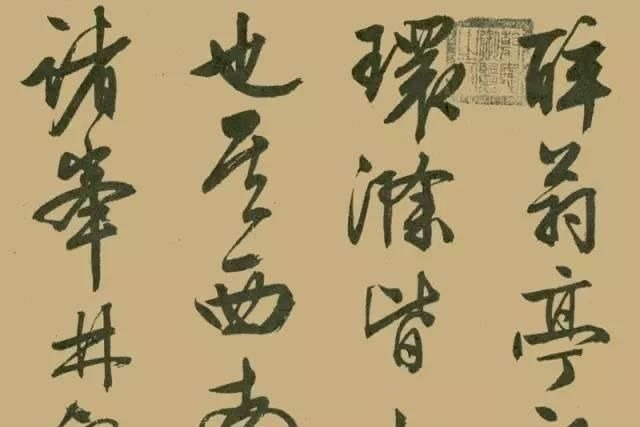 醉翁亭
環滁皆
也其西南
諸峯林